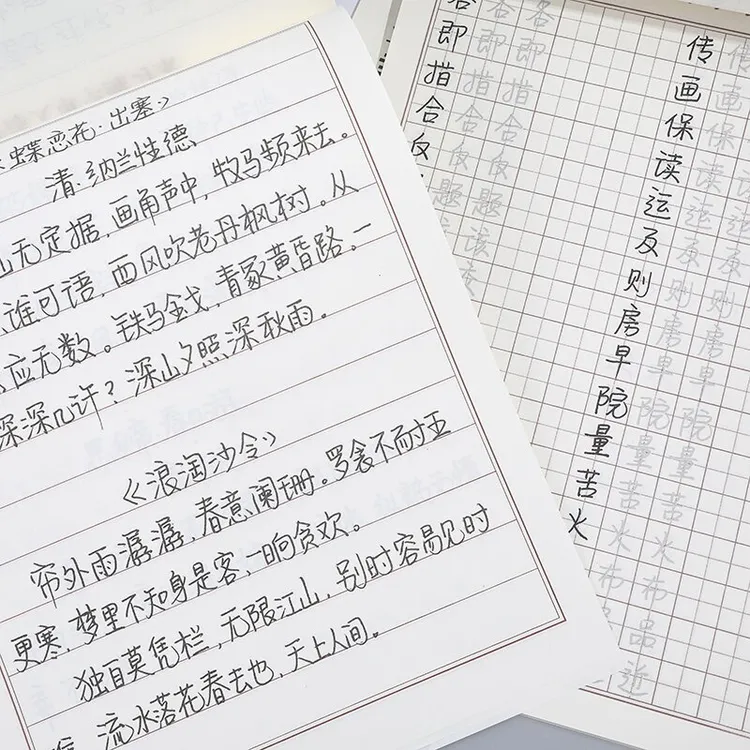 蝶恋花·出塞》
清·纳兰性德
山无定据，画角声中，牧马频来去。
谁可语，西风吹老丹枫树。从
应无数。铁马金戈，青冢黄昏路。一
深深几许？深山夕照深秋雨。
《浪淘沙令》
帘外雨潺潺，春意阑珊。罗衾不耐五
更寒，梦里不知身是客，一晌贪欢。
独自莫凭栏，无限江山，别时容易见时
流水落花春去也，天上人间。
传画保读运及则房早院量苦火
传画保读运及则房早院量苦火布品近
传画保读运及则房早院量苦火布
即指合反
即指合反题该
即指合反题